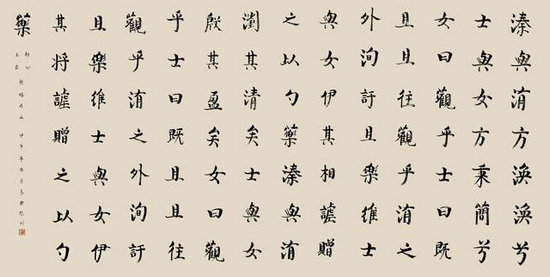 溱與洧方渙渙兮
士與女方秉簡兮
女曰觀乎士曰既
且且往觀乎洧之
外洵訏且樂維士
與女伊其相謔贈
之以勺藥溱與洧
瀏其清矣士與女
殷其盈矣女曰觀
乎士曰既且且往
觀乎洧之外洵訏
且樂維士與女伊
其將謔贈之以勺
藥